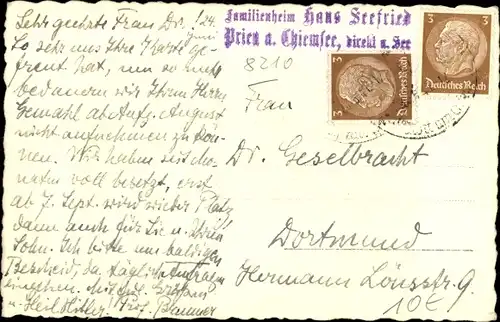 Sehr geehrte Frau Dr.! 24.
Juni
So sehr uns Ihre Karte ge-
freut hat, um so mehr
bedauern wir Ihren Herrn
Gemahl ab Anfg. August
nicht aufnehmen zu kön-
nen. Wir haben seit Mo-
naten voll besetzt, erst
ab 7. Sept. wird wieder Platz
dann auch für Sie u. Ihren
Sohn. Ich bitte um baldigen
Bescheid, da täglich Anfragen
eingehen. Mit
u. Heil Hitler!
Familienheim Haus Seefried
Prien a. Chiemsee, direkt a. See
8210
3
3
Deutsches Reich
Deutsches Reich
Frau
Dr. Geselbracht
Dortmund
Hermann Lönsstr. 9.
10€